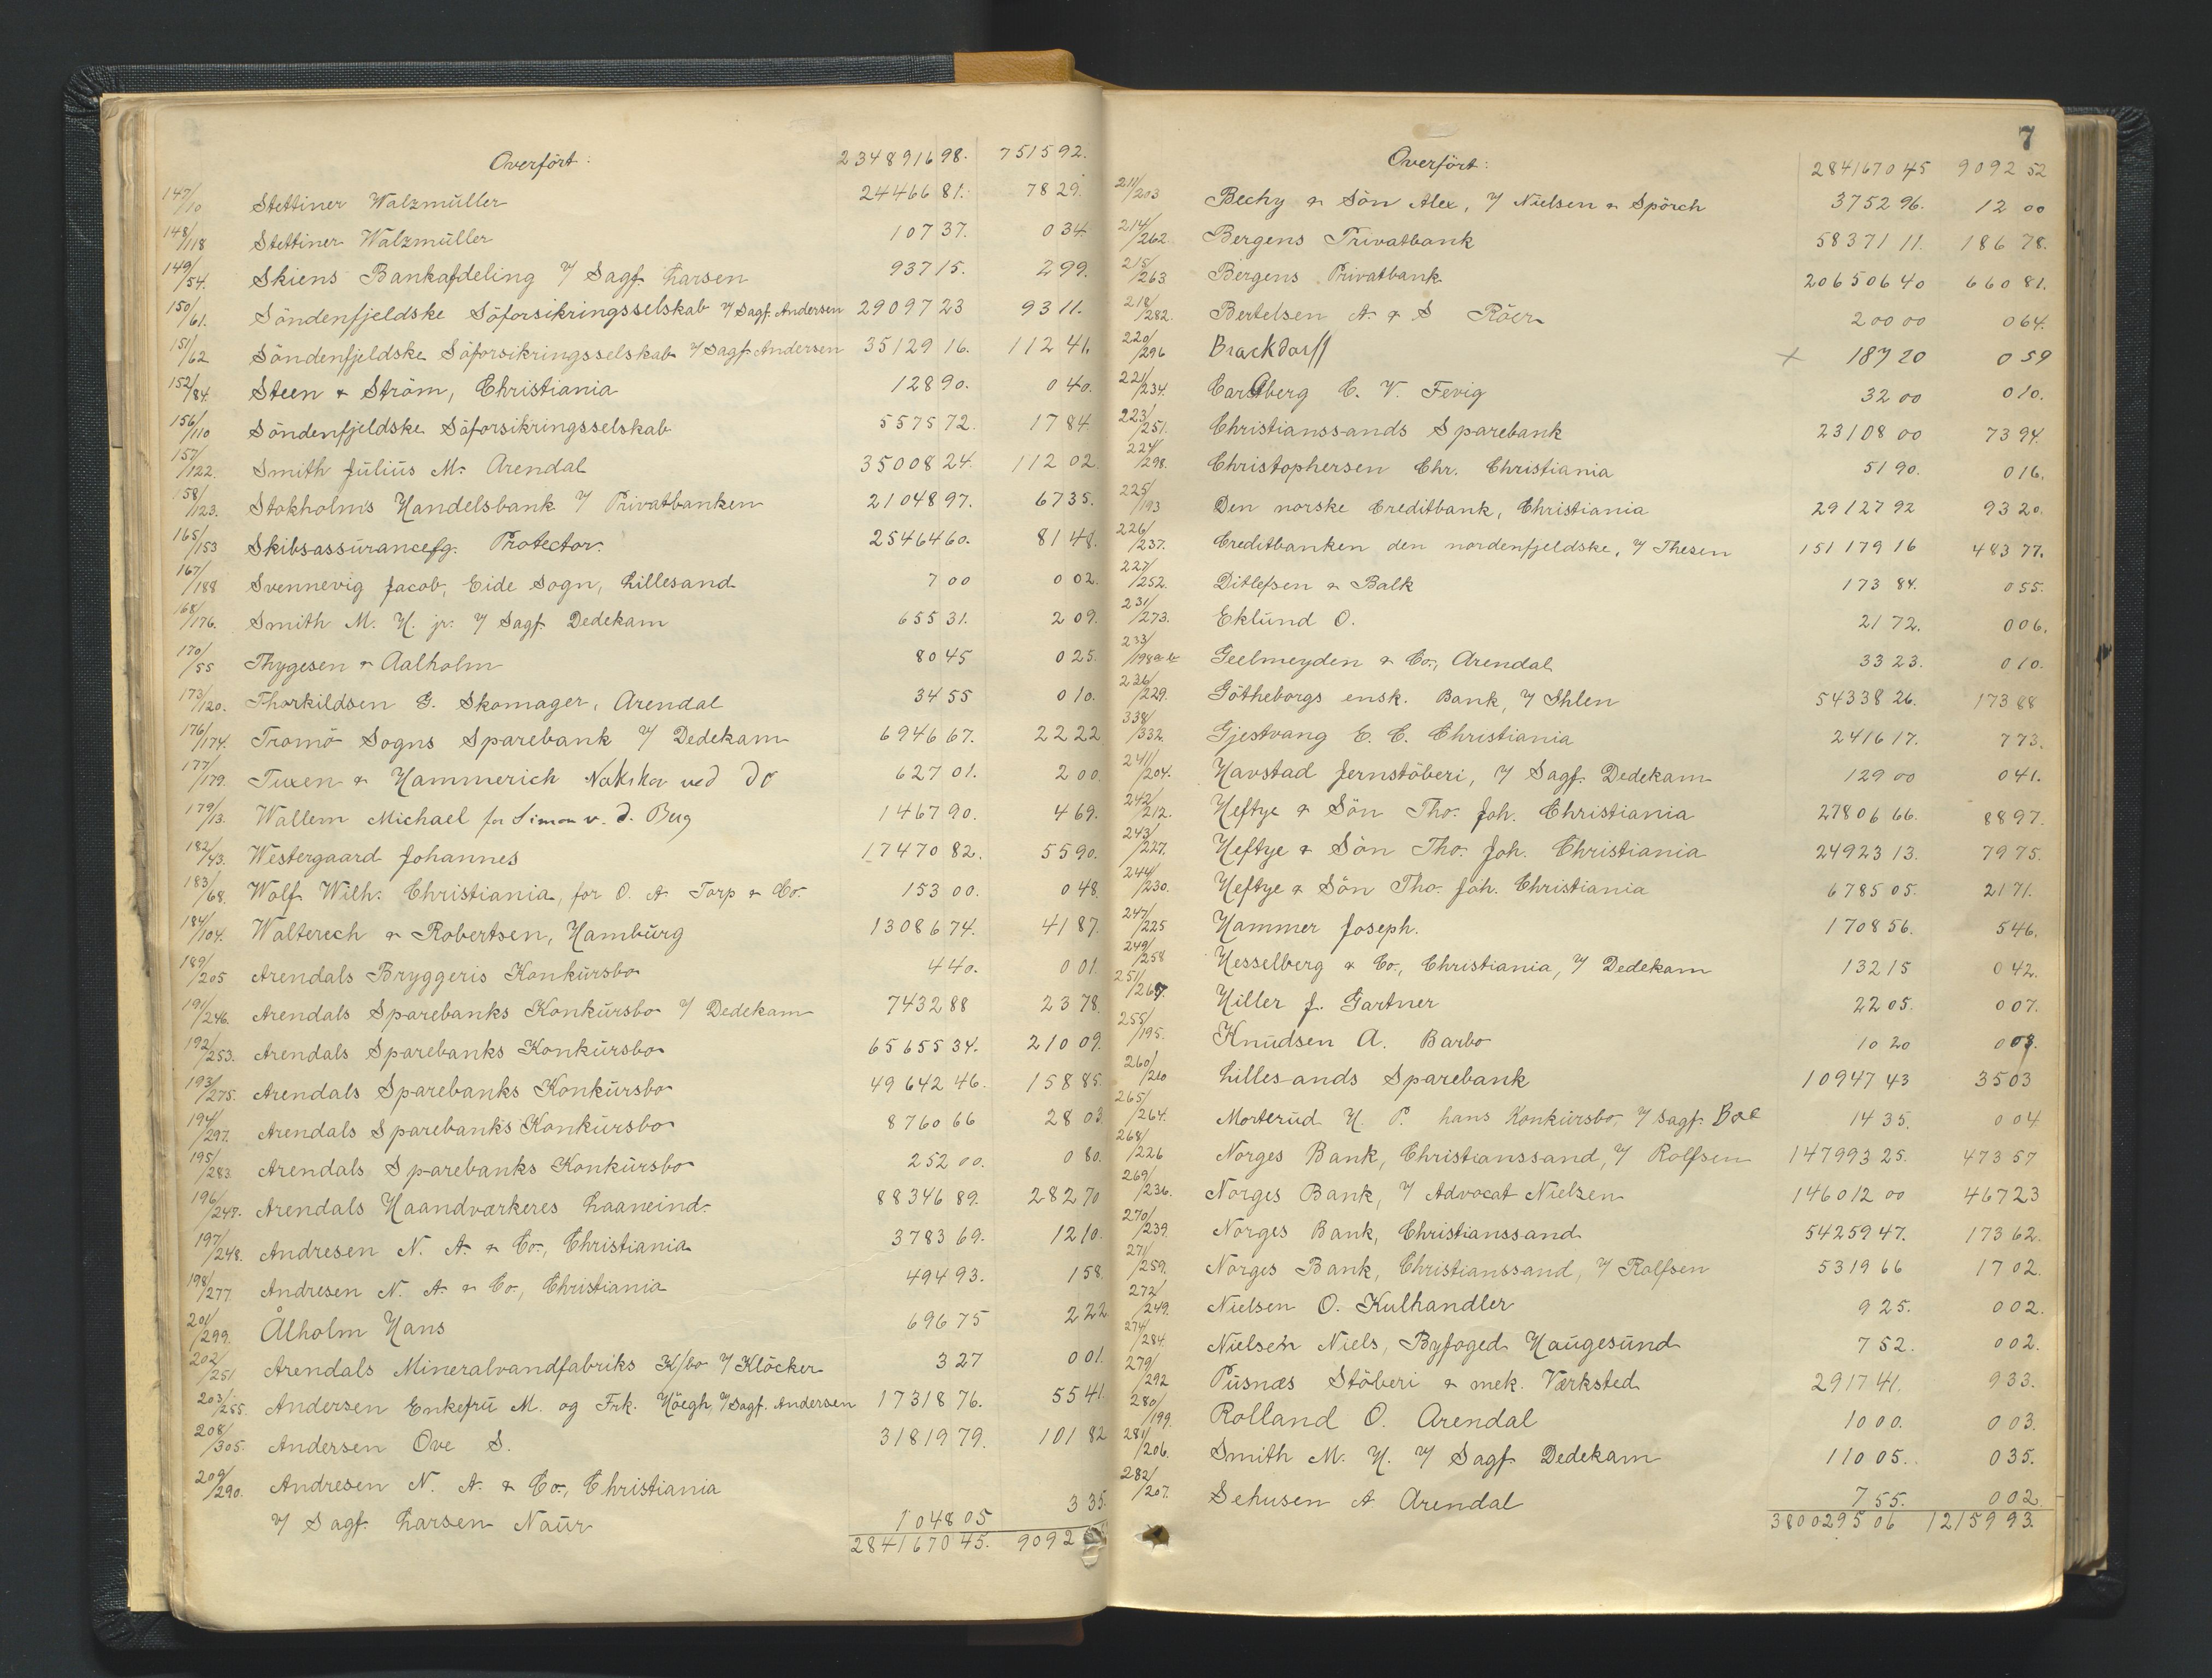 Overført: 2348916 98. 7515 92.
147/10 Stettiner Walzmüller 24466 81. 78 29.
148/118 Stettiner Walzmüller 107 37. 0 34.
149/54. Skiens Bankafdeling v/ Sagf. Larsen 937 15. 2 99.
150/61. Söndenfjeldske Söforsikringsselskab v/ Sagf. Andersen 29097 23 93 11.
151/62 Söndenfjeldske Söforsikringsselskab v/ Sagf. Andersen 35129 16. 112 41.
152/84. Steen & Ström, Christiania 128 90. 0 40.
156/110 Söndenfjeldske Söforsikringsselskab 5575 72. 17 84.
157/122. Smith Julius M. Arendal 35008 24. 112 02.
158/123. Stokholms Handelsbank v/ Privatbanken 21048 97. 67 35.
165/153 Skibsassürancefg. Protector. 25464 60. 81 48.
167/188 Svennevig Jacob, Eide Sogn, Lillesand 7 00 0 02.
168/176. Smith M. H. jr. v/ Sagf. Dedekam 655 31. 2 09.
170/55 Thygesen & Aalholm 80 45 0 25.
173/120. Thorkildsen G. Skomager, Arendal 34 55 0 10.
176/174. Tromö Sogns Sparebank v/ Dedekam 6946 67. 22 22
177/179. Tuxen & Hammerich Nakskov ved do 627 01. 2 00.
179/13. Wallem Michael for Simon v. d. Berg 1467 90. 4 69.
182/43. Westergaard Johannes 17470 82. 55 90.
183/68. Wolf Wilh. Christiania, for O. A. Torp & Co. 153 00. 0 48.
184/104. Walterech & Robertsen, Hamburg 13086 74. 41 87.
189/205 Arendals Bryggeris Konkürsbo 4 40. 0 01.
191/246. Arendals Sparebanks Konkürsbo v/ Dedekam 7432 88 23 78.
192/253. Arendals Sparebanks Konkürsbo 65655 34. 210 09.
193/275. Arendals Sparebanks Konkürsbo 49642 46. 158 85.
194/297. Arendals Sparebanks Konkürsbo 8760 66 28 03.
195/283. Arendals Sparebanks Konkürsbo 252 00. 0 80.
196/247. Arendals Haandværkeres Laaneind. 88346 89. 282 70
197/248. Andresen N. A. & Co., Christiania 3783 69. 12 10.
198/277. Andresen N. A. & Co., Christiania 494 93. 1 58.
201/299. Ålholm Hans 696 75 2 22
202/251 Arendals Mineralvandfabriks K/bo v/ Klöcker 3 27 0 01.
203/255. Andersen Enkefrü M. og Frk. Höegh, v/ Sagf. Andersen 17318 76. 55 41.
208/305. Andersen Ove S. 31819 79. 101 82
209/290. Andresen N. A. & Co., Christiania
v/ Sagf. Larsen Naür 1048 05 3 35.
2841670 45. 9092
7
Overfört: 2841670 45 9092 52
211/203 Bechy & Sön Alex, v/ Nielsen & Spörch 3752 96. 12 00
214/262. Bergens Privatbank 58371 11. 186 78.
215/263 Bergens Privatbank 206506 40 660 81.
218/282. Bertelsen A. & S Röer 200 00 0 64.
220/296 Brackdorff × 187 20 0 59
221/234. Carlberg C. V. Fevig 32 00 0 10.
223/251. Christianssands Sparebank 23108 00 73 94.
224/298. Christophersen Chr. Christiania 51 90. 0 16.
225/193 Den norske Creditbank, Christiania 29127 92 93 20.
226/237. Creditbanken den nordenfjeldske, v/ Thesen 151179 16 483 77.
227/252. Ditlefsen & Balk 173 84. 0 55.
231/273. Eklünd O. 21 72. 0 06.
233/198a-b Geelmeyden & Co., Arendal 33 23. 0 10.
236/229. Götheborgs ensk. Bank, v/ Ihlen 54338 26. 173 88
338/332. Gjestvang E. C. Christiania 2416 17. 7 73.
241/204. Havstad Jernstöberi, v/ Sagf. Dedekam 129 00 0 41.
242/212. Heftye & Sön Tho. Joh. Christiania 27806 66. 88 97.
243/227. Heftye & Sön Tho. Joh. Christiania 24923 13. 79 75.
244/230. Heftye & Sön Tho. Joh. Christiania 6785 05. 21 71.
247/225 Hammer Joseph. 1708 56. 5 46.
249/258 Hesselberg & Co., Christiania, v/ Dedekam 132 15 0 42.
251/267. Hiller J. Gartner 22 05. 0 07.
255/195. Knudsen A. Barbo 10 20 0 03.
260/260 Lillesands Sparebank 10947 43 35 03
265/264. Morterud H. P. hans Konkürsbo, v/ Sagf. Boe 14 35. 0 04
268/226 Norges Bank, Christianssand, v/ Rolfsen 147993 25. 473 57
269/236. Norges Bank, v/ Advocat Nielsen 146012 00 467 23
270/239. Norges Bank, Christianssand 54259 47. 173 62.
271/259. Norges Bank, Christianssand, v/ Rolfsen 5319 66 17 02.
272/249. Nielsen O. Kulhandler 9 25. 0 02.
274/284. Nielsen Niels, Byfoged Haügesünd 7 52. 0 02.
279/292 Püsnæs Stöberi & mek. Værksted 2917 41. 9 33.
280/199. Rolland O. Arendal 10 00. 0 03.
281/206. Smith M. H. v/ Sagf. Dedekam 110 05. 0 35.
282/207. Sehusen A Arendal 7 55. 0 02.
3800295 06 12159 93.